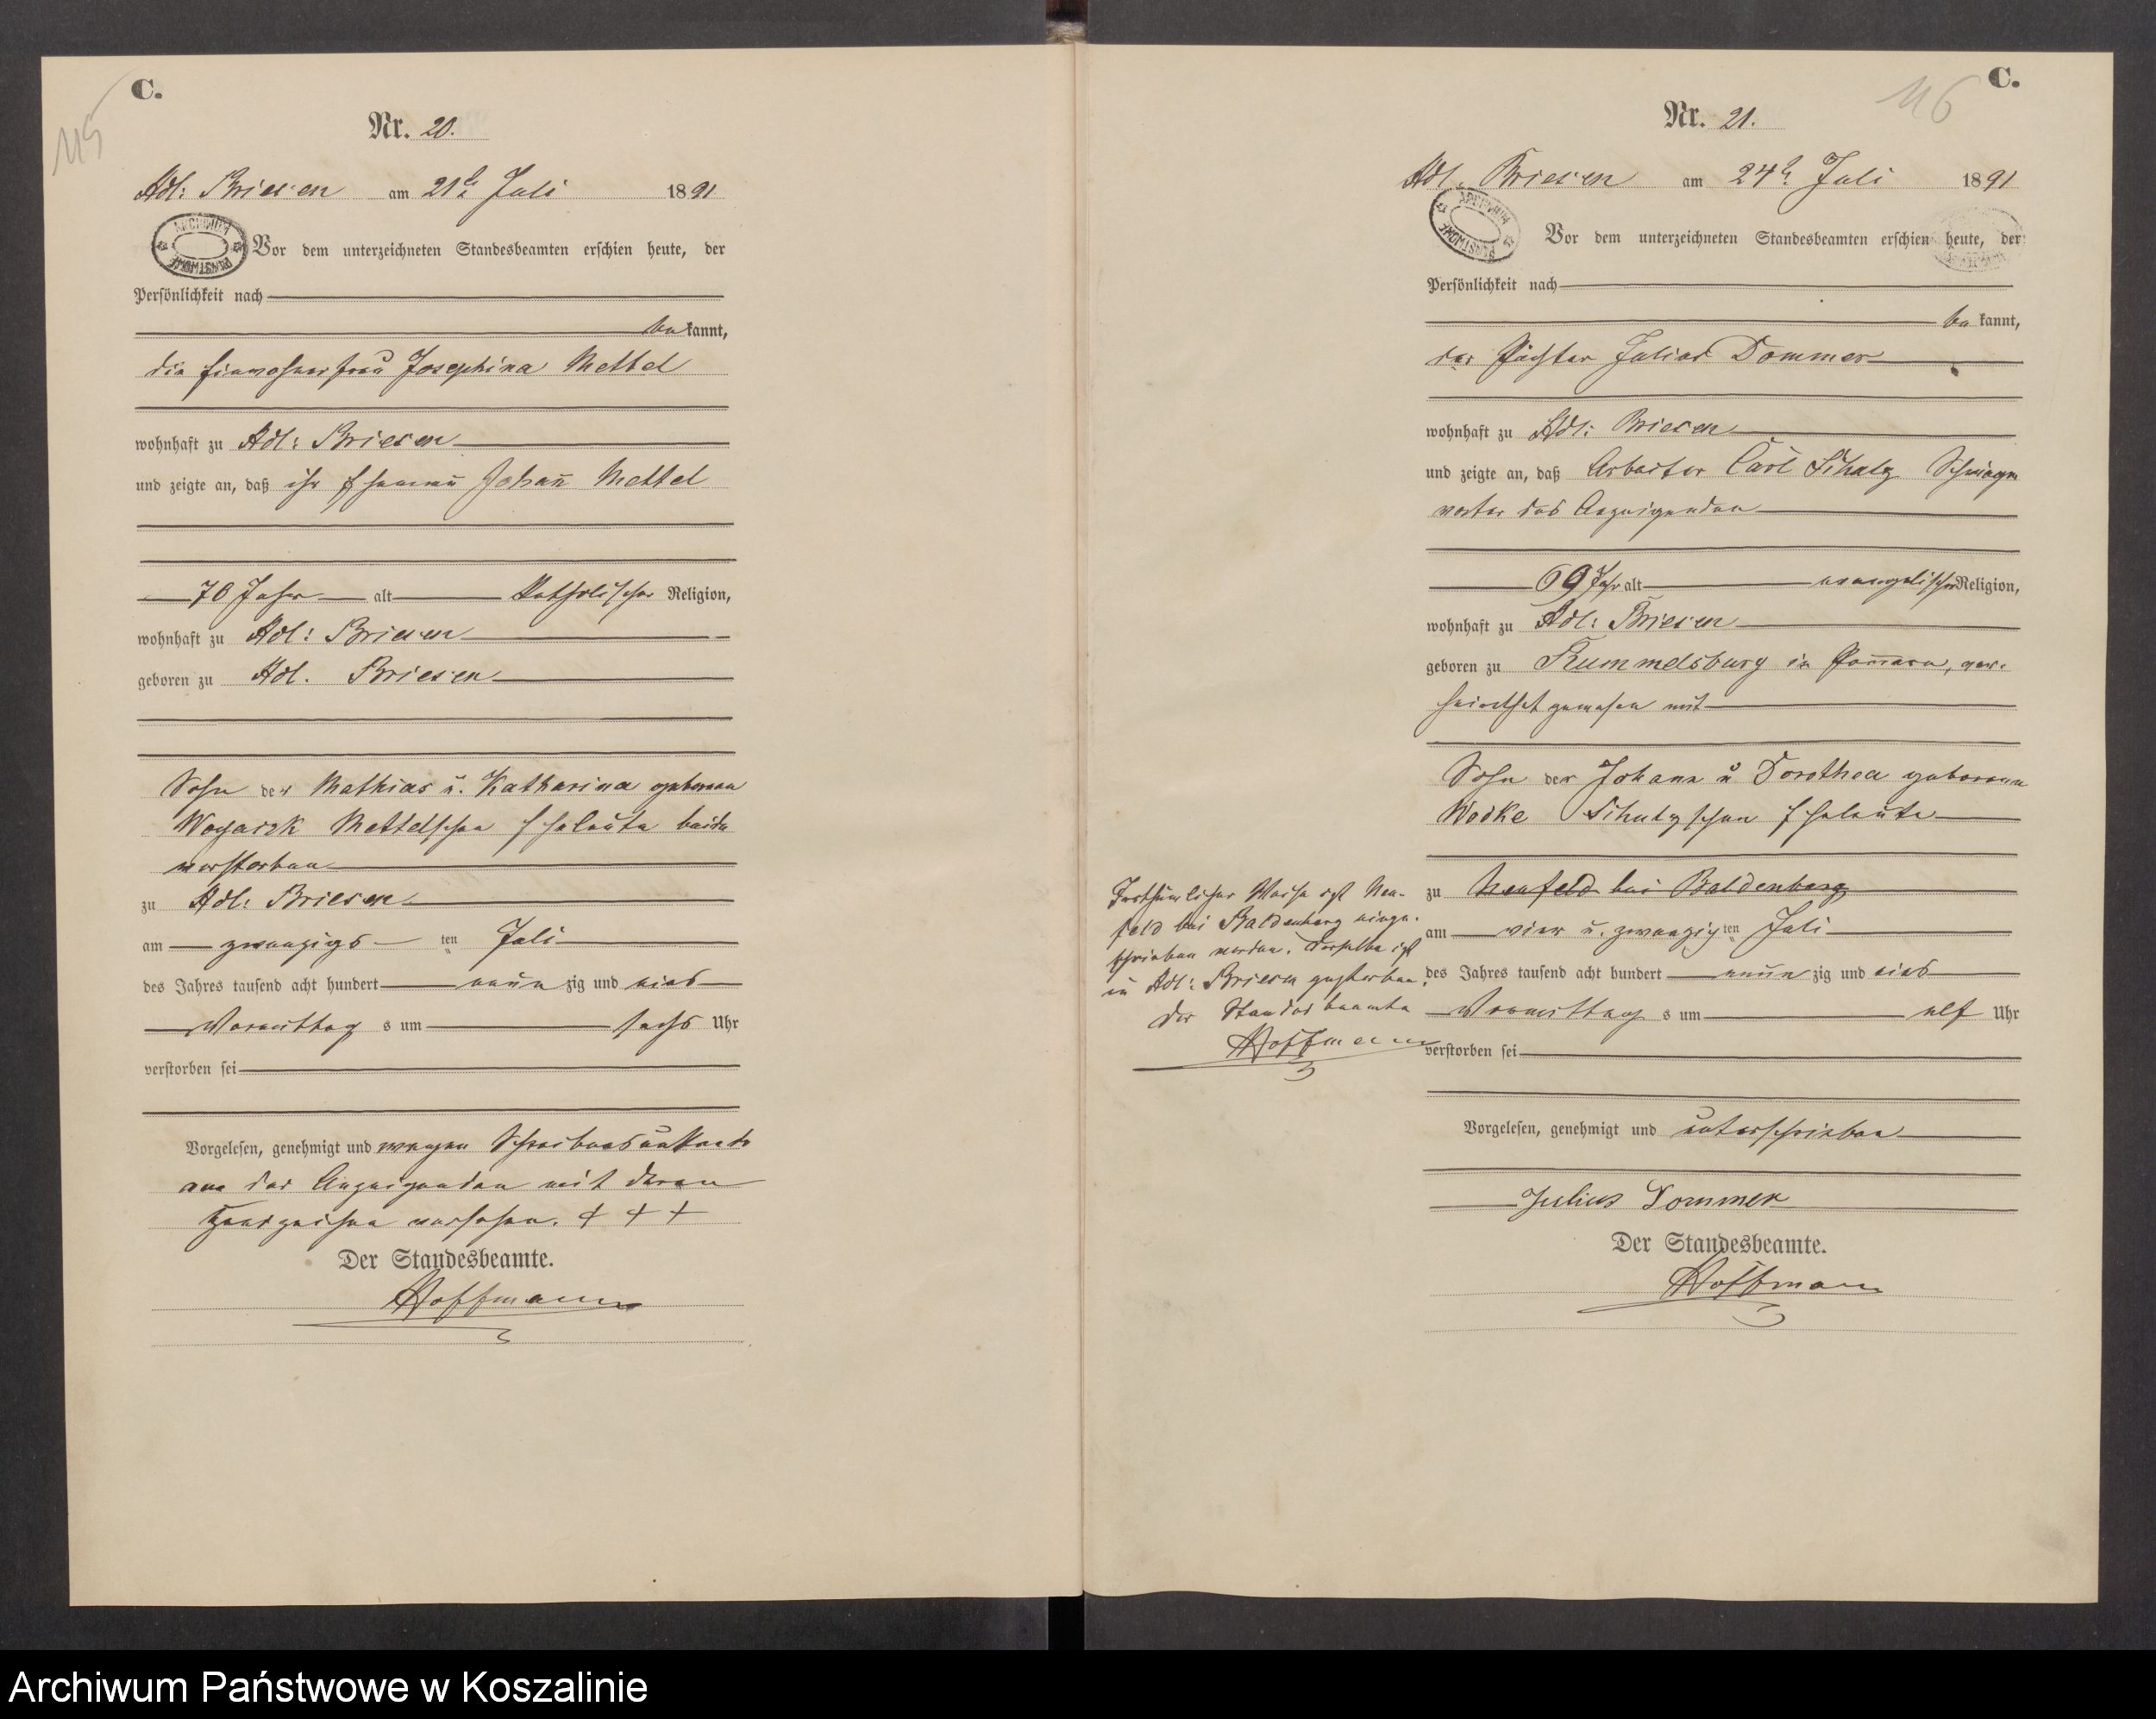 C.
115
Nr. 20.
Adl: Briesen am 21t. Juli 1891
ARCHIWUM PAŃSTWOWE
Vor dem unterzeichneten Standesbeamten erschien heute, der
Persönlichkeit nach
be kannt,
die Einwohnerfrau Josephina Mettel
wohnhaft zu Adl: Briesen
und zeigte an, daß ihr Ehemañ Johañ Mettel
70 Jahr alt katholischer Religion,
wohnhaft zu Adl: Briesen
geboren zu Adl. Briesen
Sohn der Mathias u. Katharina geborene
Mettelschen Eheleute beide
verstorben
zu Adl: Briesen
am zwanzigs ten Juli
des Jahres tausend acht hundert neun zig und eins
Vormittag s um sechs Uhr
verstorben sei
Vorgelesen, genehmigt und wegen Schreibensunkennt-
der Anzeigenden mit deren
Handzeichen versehen. + + +
Der Standesbeamte.
Hoffmann
C.
116
Nr. 21.
Adl. Briesen am 24t. Juli 1891
ARCHIWUM PAŃSTWOWE
Vor dem unterzeichneten Standesbeamten erschien heute, der
Persönlichkeit nach
be kannt,
der Pächter Julius Dommer
wohnhaft zu Adl: Briesen
und zeigte an, daß Arbeiter Carl Schulz Schwieger
vater des Anzeigenden
69 Jahr alt evangelischer Religion,
wohnhaft zu Adl: Briesen
geboren zu Rummelsburg in Pom̄ern, ver-
heirathet gewesen mit
Sohn der Johann u Dorothea geborene
Wodke Schulzschen Eheleute
zu Neufeld bei Baldenburg
am vier u. zwanzig ten Juli
des Jahres tausend acht hundert neun zig und eins
Vormittag s um elf Uhr
verstorben sei
Irrthümlicher Weise ist Neu-
feld bei Baldenburg einge-
schrieben worden. Derselbe ist
in Adl: Briesen gestorben.
Der Standesbeamte
Hoffmann
Vorgelesen, genehmigt und unterschrieben
Julius Dommer
Der Standesbeamte.
Hoffmann
Archiwum Państwowe w Koszalinie